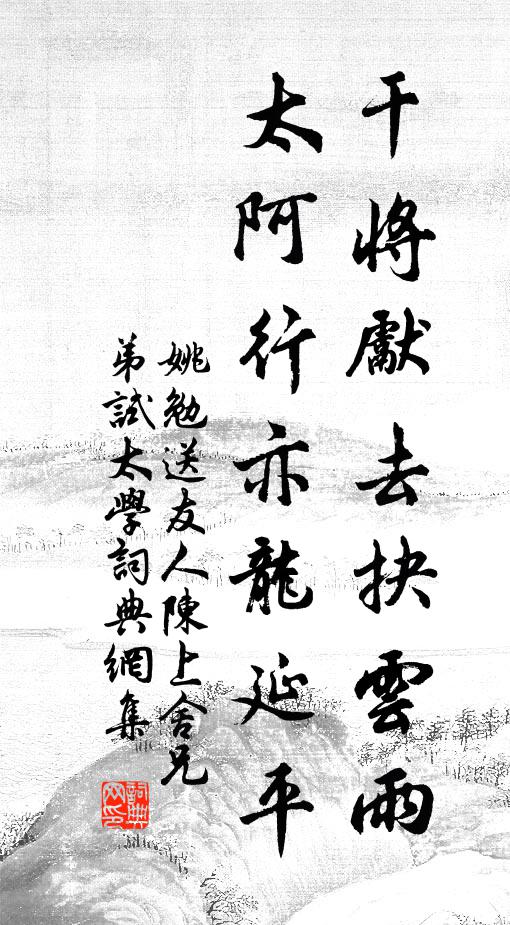 干將獻去抉雲雨
太阿行亦龍延平
姚勉送友人陳上舍兄
弟試太學詞典網集
詞典
网印